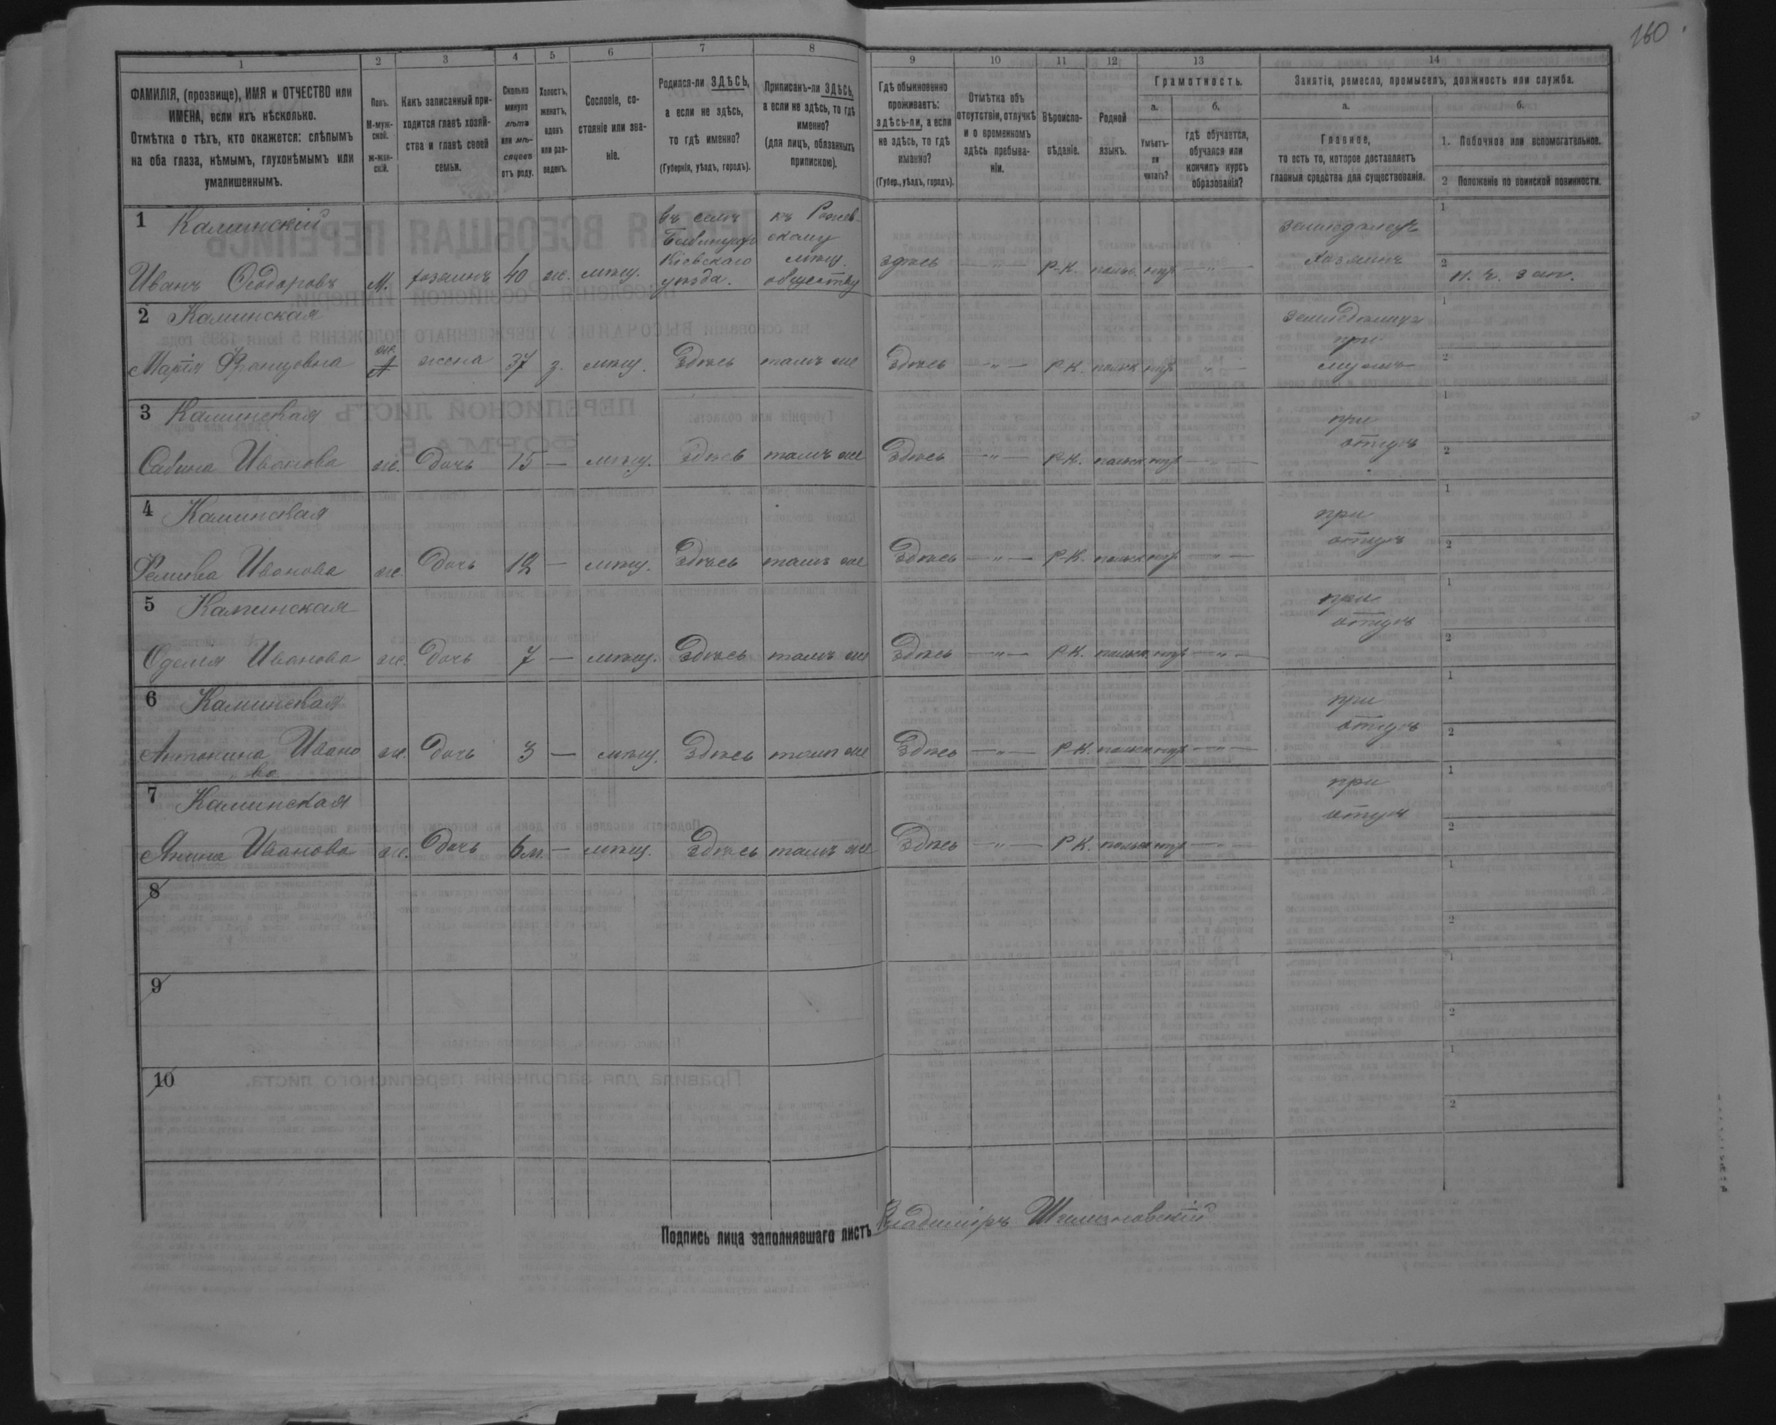 160
1 2 3 4 5 6 7 8 9 10 11 12 13 14
ФАМИЛІЯ, (прозвище), ИМЯ и ОТЧЕСТВО или
ИМЕНА, если ихъ нѣсколько.
Отмѣтка о тѣхъ, кто окажется: слѣпымъ
на оба глаза, нѣмымъ, глухонѣмымъ или
умалишеннымъ.
Полъ.
М-муж-
ской.
ж-жен-
скій.
Какъ записанный при-
ходится главѣ хозяй-
ства и главѣ своей
семьи.
Сколько
минуло
лѣтъ
или мѣ-
сяцевъ
отъ роду.
Холостъ,
женатъ,
вдовъ
или раз-
веденъ.
Сословіе, со-
стояніе или зва-
ніе.
Родился-ли ЗДѢСЬ,
а если не здѣсь,
то гдѣ именно?
(Губернія, уѣздъ, городъ).
Приписанъ-ли ЗДѢСЬ,
а если не здѣсь, то гдѣ
именно?
(для лицъ, обязанныхъ
припискою).
Гдѣ обыкновенно
проживаетъ:
здѣсь-ли, а если
не здѣсь, то гдѣ
именно?
(Губер., уѣздъ, городъ).
Отмѣтка объ
отсутствіи, отлучкѣ
и о временномъ
здѣсь пребыва-
ніи.
Вѣроиспо-
вѣданіе.
Родной
языкъ.
Грамотность.
а.
Умѣетъ-
ли
читать?
б.
гдѣ обучается,
обучался или
кончилъ курсъ
образованія?
Занятія, ремесло, промыселъ, должность или служба.
а.
Главное,
то есть то, которое доставляетъ
главныя средства для существованія.
б.
1. Побочное или вспомогательное.
2 Положеніе по воинской повинности.
1 Каминскій въ селѣ къ земледѣлецъ 1
скому
Кіевскаго мѣщ. хозяинъ
Иванъ Ѳедоровъ М. хозяинъ 40 ж. мѣщ. уѣзда. обществу здѣсь — " — Р.К. польс. нтъ — " — 2
2 Каминская земледѣліе 1
при
Марія Францовна ж. жена 37 з. мѣщ. Здѣсь тамъ же Здѣсь — " — Р.К. польск нтъ — " — мужѣ 2
3 Каминская при 1
Сабина Иванова ж. дочь 15 — мѣщ. Здѣсь тамъ же Здѣсь — " — Р.К. польск нтъ — " — отцѣ 2
4 Каминская при 1
Иванова ж. дочь 12 — мѣщ. Здѣсь тамъ же Здѣсь — " — Р.К. польск нтъ — " — отцѣ 2
5 Каминская при 1
Иванова ж. дочь 7 — мѣщ. Здѣсь тамъ же Здѣсь — " — Р.К. польск нтъ — " — отцѣ 2
6 Каминская при 1
Антонина Ивано ж. дочь 3 — мѣщ. Здѣсь тамъ же Здѣсь — " — Р.К. польск нтъ — " — отцѣ 2
ва
7 Каминская при 1
Янина Иванова ж. дочь 6 м. — мѣщ. Здѣсь тамъ же Здѣсь — " — Р.К. польск нтъ — " — отцѣ 2
8 1
2
9 1
2
10 1
2
Подпись лица заполнявшаго листъ Владиміръ